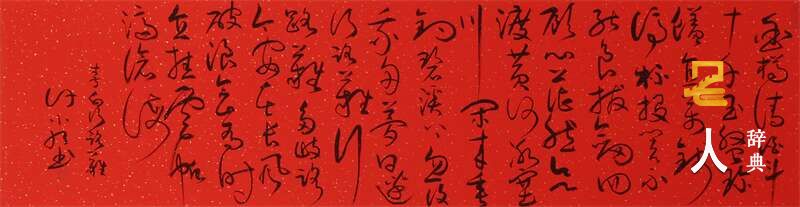 金樽清酒斗
十千玉盘珍
馐直万钱
停杯投箸不
能食拔剑四
顾心茫然欲
渡黄河冰塞
川闲来垂
钓碧溪上忽复
乘舟梦日边
行路难行
路难多歧路
今安在长风
破浪会有时
直挂云帆
济沧海
李白行路难
名人辞典